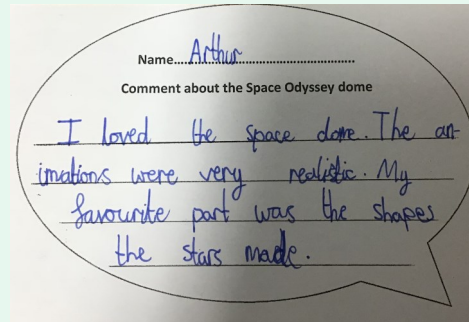 Name....Arthur..............................
Comment about the Space Odyssey dome
I loved the space dome. The an-
imations were very realistic. My
favourite part was the shapes
the stars made.